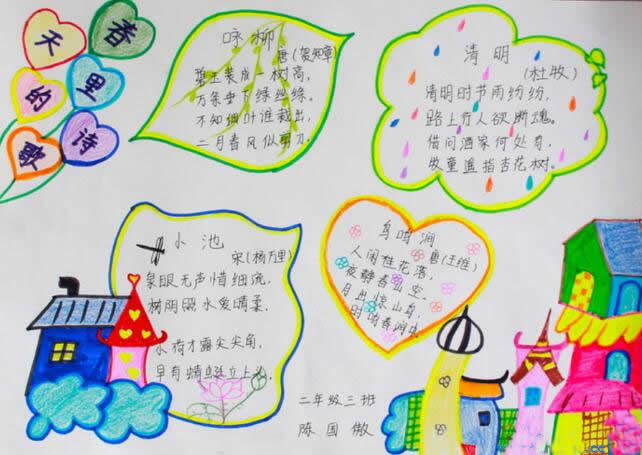 春天里的诗歌
咏柳
唐(贺知章)
碧玉装成一树高,
万条垂下绿丝绦。
不知细叶谁裁出,
二月春风似剪刀。
清明
(杜牧)
清明时节雨纷纷,
路上行人欲断魂。
借问酒家何处有,
牧童遥指杏花树。
小池
宋(杨万里)
泉眼无声惜细流,
树阴照水爱晴柔。
小荷才露尖尖角,
早有蜻蜓立上头。
鸟鸣涧
唐(王维)
人闲桂花落,
夜静春山空。
月出惊山鸟,
时鸣春涧中
二年级三班
陈国傲